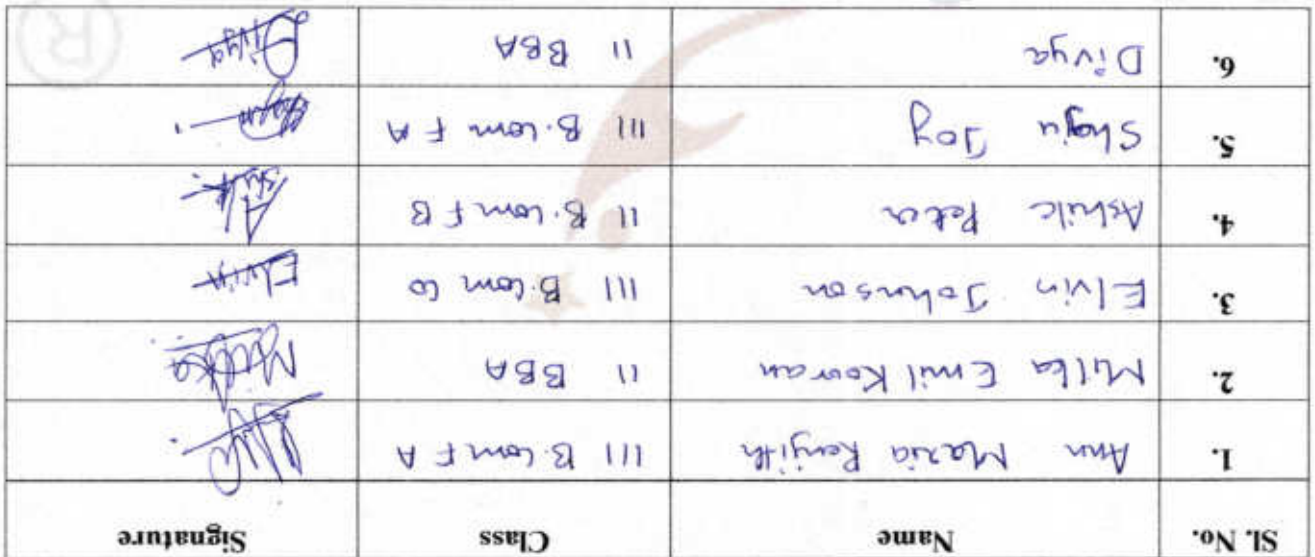 Sl. No. Name Class Signature
1. Ann Maria Renjith III B.Com F A
2. Milka Emil Kooran II BBA Milka
3. Elvin Johnson III B.Com Co Elvin
4. Ashik Peter II B.Com F B Ashik
5. Shaju Joy III B.Com F A
6. Divya II BBA Divya
®